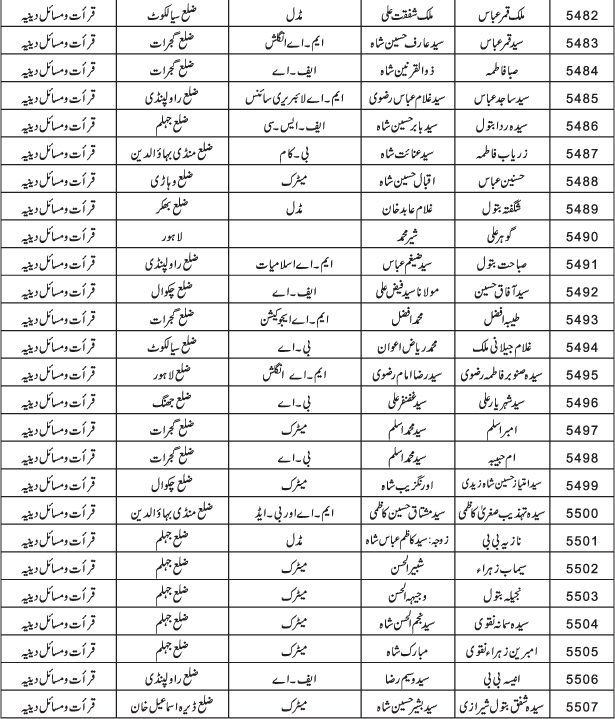 5482 ملک قمر عباس ملک شفقت علی مڈل ضلع سیالکوٹ قرأت ومسائل دینیہ
5483 سید قمر عباس سید عارف حسین شاہ ایم۔اے انگلش ضلع گجرات قرأت ومسائل دینیہ
5484 صبا فاطمہ ذوالقرنین شاہ ایف۔اے ضلع گجرات قرأت ومسائل دینیہ
5485 سید ساجد عباس سید غلام عباس رضوی ایم۔اے لائبریری سائنس ضلع راولپنڈی قرأت ومسائل دینیہ
5486 سیدہ ردا بتول سید بابر حسین شاہ ایف۔ایس۔سی ضلع جہلم قرأت ومسائل دینیہ
5487 زریاب فاطمہ سید عنائت شاہ بی۔کام ضلع منڈی بہاؤالدین قرأت ومسائل دینیہ
5488 حسنین عباس اقبال حسین شاہ میٹرک ضلع وہاڑی قرأت ومسائل دینیہ
5489 شگفتہ بتول غلام عابد خان مڈل ضلع بھکر قرأت ومسائل دینیہ
5490 گوہر علی شیر محمد لاہور قرأت ومسائل دینیہ
5491 صباحت بتول سید ضیغم عباس ایم۔اے اسلامیات ضلع راولپنڈی قرأت ومسائل دینیہ
5492 سید آفاق حسین مولانا سید فیض علی ایف۔اے ضلع چکوال قرأت ومسائل دینیہ
5493 طیبہ افضل محمد افضل ایم۔اے ایجوکیشن ضلع گجرات قرأت ومسائل دینیہ
5494 غلام جیلانی ملک محمد ریاض اعوان بی۔اے ضلع سیالکوٹ قرأت ومسائل دینیہ
5495 سیدہ صنوبر فاطمہ رضوی سید رضا امام رضوی ایم۔اے انگلش ضلع لاہور قرأت ومسائل دینیہ
5496 سید شہریار علی سید غضنفر علی بی۔اے ضلع جھنگ قرأت ومسائل دینیہ
5497 امبر اسلم سید محمد اسلم میٹرک ضلع گجرات قرأت ومسائل دینیہ
5498 ام حبیبہ سید محمد اسلم بی۔اے ضلع گجرات قرأت ومسائل دینیہ
5499 سید امتیاز حسین شاہ زیدی اورنگزیب شاہ میٹرک ضلع چکوال قرأت ومسائل دینیہ
5500 سیدہ تہذیب صغریٰ کاظمی سید مشتاق حسین کاظمی ایم۔اے اور بی۔ایڈ ضلع منڈی بہاؤالدین قرأت ومسائل دینیہ
5501 نازیہ بی بی زوجہ: سید کاظم عباس شاہ مڈل ضلع جہلم قرأت ومسائل دینیہ
5502 سیماب زہراء شبیر الحسن میٹرک ضلع جہلم قرأت ومسائل دینیہ
5503 نجیلہ بتول وجیہہ الحسن میٹرک ضلع جہلم قرأت ومسائل دینیہ
5504 سیدہ سمانہ نقوی سید نجم الحسن شاہ میٹرک ضلع جہلم قرأت ومسائل دینیہ
5505 امبرین زہراء نقوی مبارک شاہ میٹرک ضلع جہلم قرأت ومسائل دینیہ
5506 انیسہ بی بی سید وسیم رضا ایف۔اے ضلع راولپنڈی قرأت ومسائل دینیہ
5507 سیدہ شفق بتول شیرازی سید بشیر حسین شاہ میٹرک ضلع ڈیرہ اسماعیل خان قرأت ومسائل دینیہ